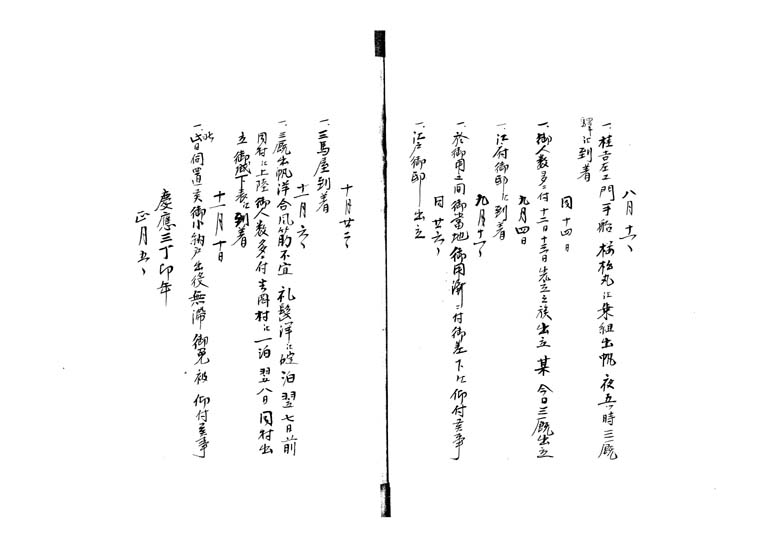 八月十一日
一、桂吉左エ門手船 桜松丸ニ乗組出帆 夜五ツ時三厩
驛ニ到着
同十四日
一、御人数多ニ付十二日十三日出立之族出立 某 今日三厩出立
九月四日
一、江府御邸ニ到着
九月十一日
一、於御用之間御當地御用済ニ付御差下ニ 仰付候事
同廿六日
一、江戸御邸出立
十月廿二日
一、三馬屋到着
十一月六日
一、三厩出帆洋合風筋不宜 礼髭洋ニ碇泊 翌七日前
同村ニ上陸 御人数多ニ付 吉岡村ニ一泊 翌八日同村出
立 御城下表ニ到着
十一月十日
一、此日伺置候御小納戸出役無滞 御免被 仰付候事
慶應三丁卯年
正月五日